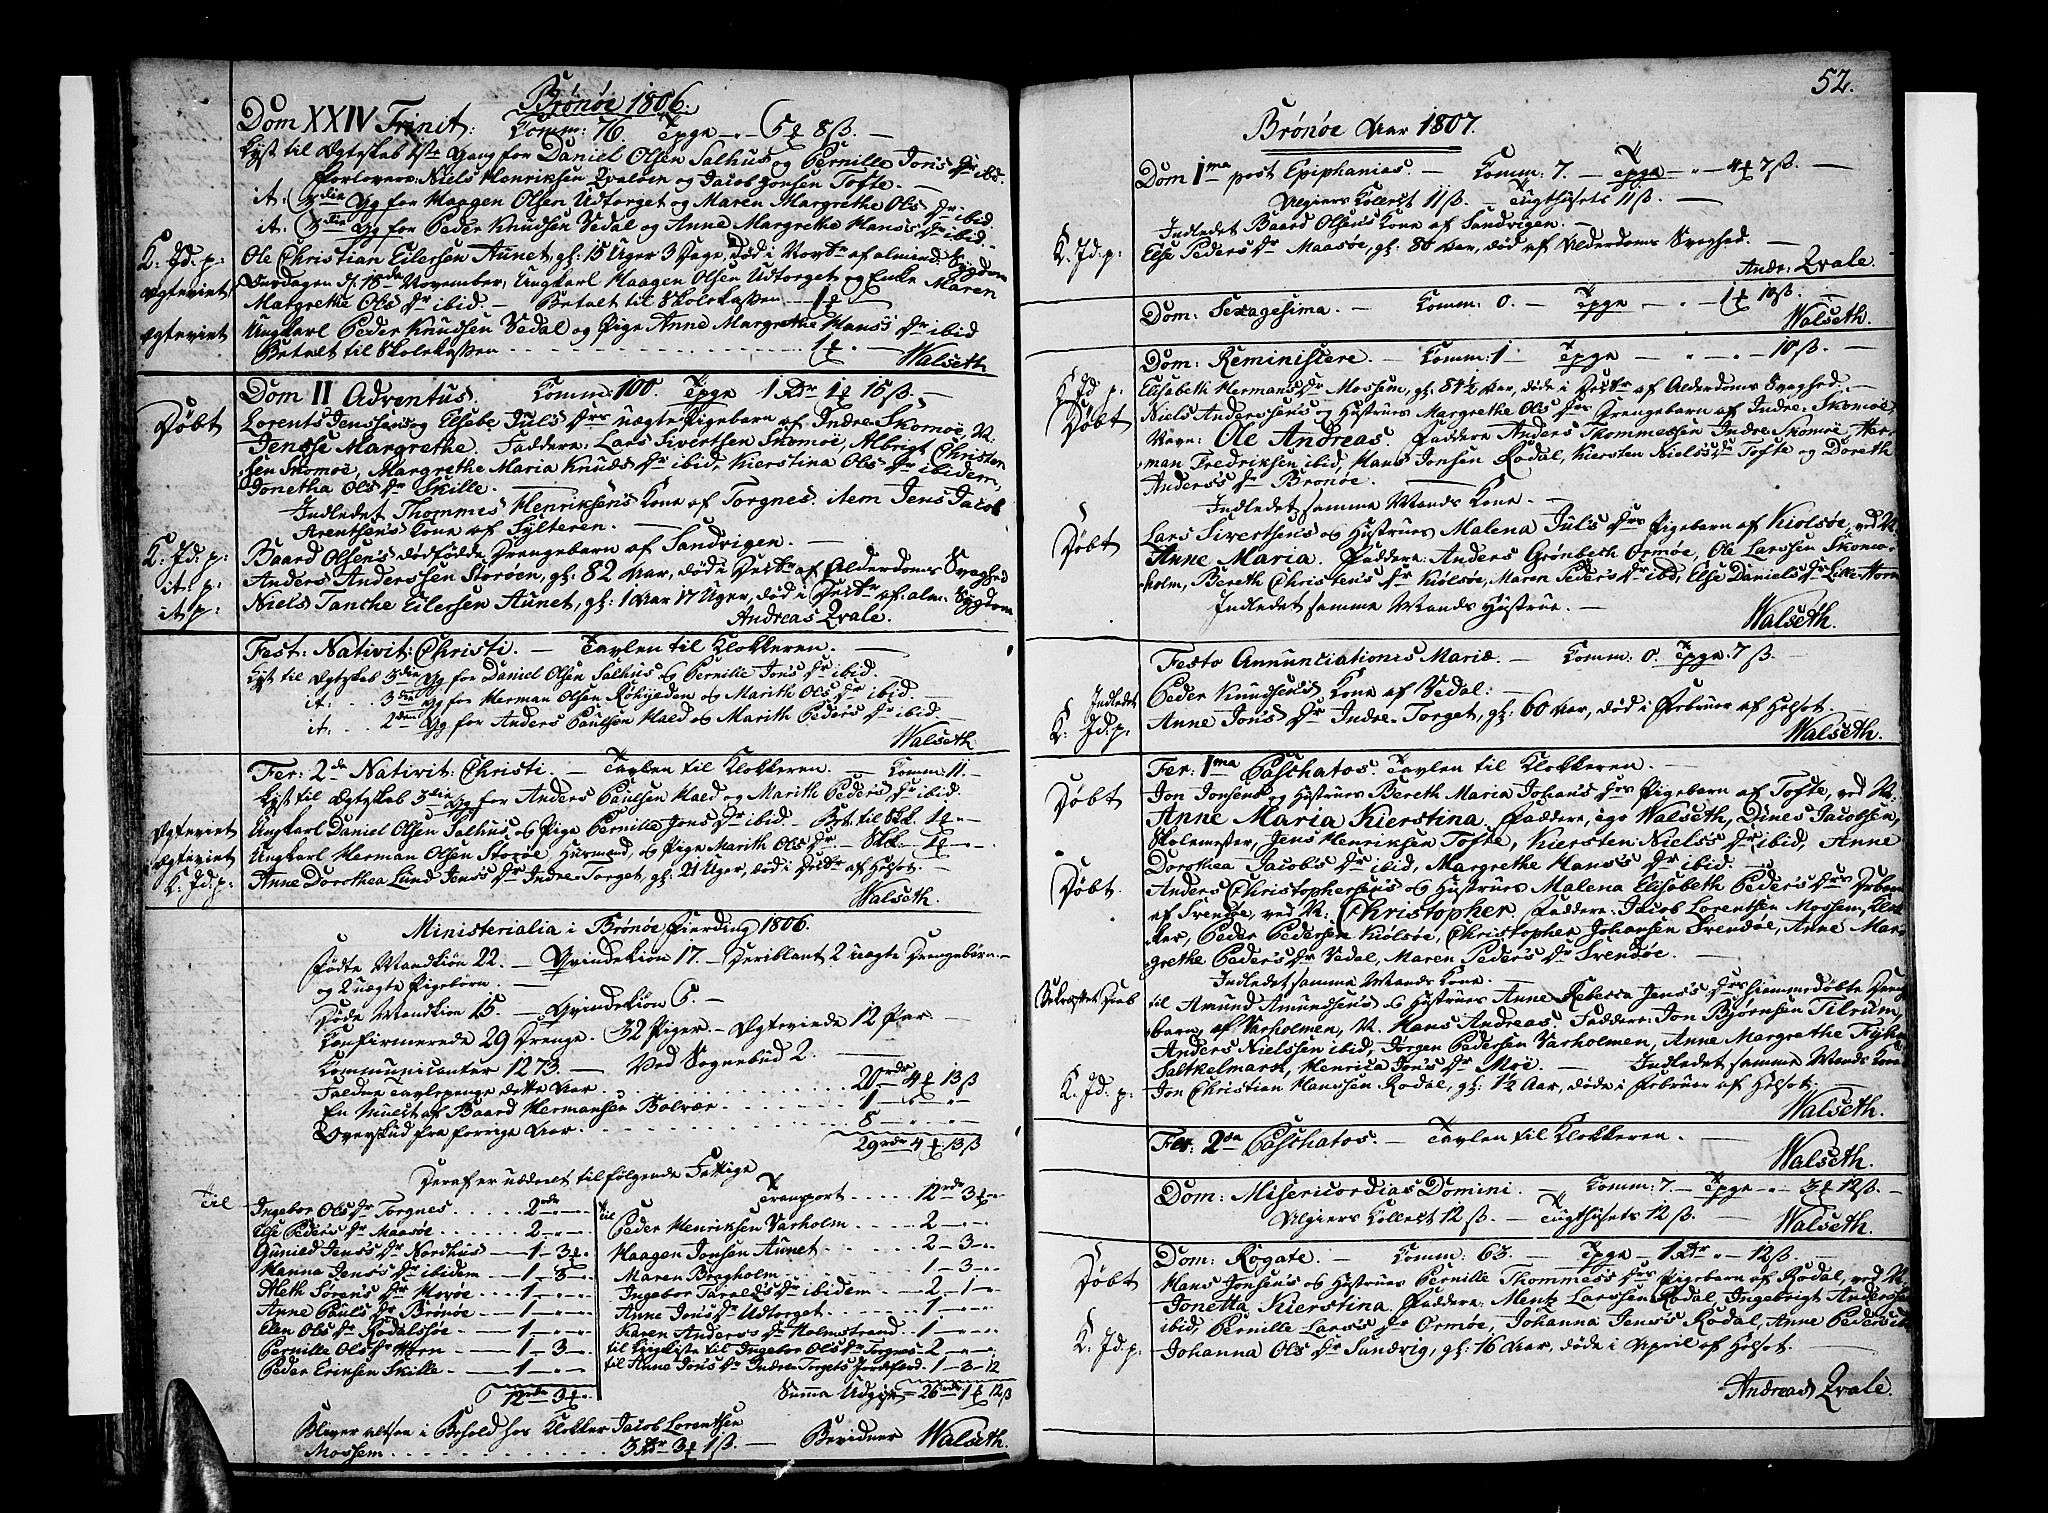 Brönöe 1806.
Dom XXIV Trinit: Comm: 76. Tpge " - 5 ₰ 8 ß. —
Lyst til Ægteskab 1ste Gang for Daniel Olsen Salhus og Pernille Jons Dr ibd.
Forlovere: Niels Henriksen Qvaløen og Jacob Jonsen Tofte. —
it: 3die Gg for Haagen Olsen Udtorget og Maren Margrethe Ols Dr ibid
it: 3die Gg for Peder Knudsen Vedal og Anne Margrethe Hans's Dr ibid. —
K: Jd: p: Ole Christian Eilersen Aunet, gl: 15 Uger 3 Dage, død i Novbr af almind: Sygdom
Ægteviet Søndagen d: 16de November, Ungkarl Haagen Olsen Udtorget og Enke Maren
Matgrethe Ols Dr ibid. — Betalt til Skolekassen — 1 ₰
Ægteviet Ungkarl Peder Knudsen Vedal og Pige Anne Margrethe Hans's Dr ibid
Betalt til Skolekassen . . . . . 1 ₰ . — Walseth
Dom II Adventus. Comm: 100. Tpge 1 Dr 1 ₰ 15 ß. —
Døbt Lorents Jenssens og Elsebe Juls Drs uægte Pigebarn af Indre-Skomoe, N:
Jensse Margrethe. Faddere: Lars Sivertsen Skomoe, Albrigt Christen
sen Skomoe, Margrethe Maria Knuds Dr ibid, Kierstina Ols Dr ibidem,
Jonetha Ols Dr Skille.
Indledet Thommes Henriksens Kone af Torgnes. item Jens Jacob
Arentsens Kone af Sylteren. —
K: Jd: p: Baard Olsens dødfødde Drengebarn af Sandvigen. —
it: p: Anders Anderssen Storøen, gl: 82 Aar, død i Decbr af Alderdoms Svaghed
it p: Niels Tanche Eilersen Aunet, gl: 1 Aar 17 Uger, død i Decbr af alm. Sygdom
Andreas Qvale.
Fest: Nativit: Christi. — Tavlen til Klokkeren. —
Lyst til Ægtskab 3die Gg for Daniel Olsen Salhus og Pernille Jons Dr ibid.
it: . . 3die Gg for Herman Olsen og Marith Ols Dr ibid. —
it: . . 2den Gg for Anders Paulsen Hald og Marith Peders Dr ibid. —
Walseth.
Fer: 2de Nativit: Christi — Tavlen til Klokkeren. — Komm: 11.
Lyst til Ægteskab 3die Gg for Anders Paulsen Hald og Marith Peders Dr ibid.
Ægteviet Ungkarl Daniel Olsen Salhus, og Pige Pernille Jons Dr ibid — Bet: til Skk. 1 ₰ "
Ægteviet Ungkarl Herman Olsen Storøe Huusmand, og Pige Marith Ols Dr — Skk: — 1 ₰ —
K: Jd: p: Anne Dorothea Lund Jens's Dr Indre-Torget, gl: 21 Uger, død i Decbr af Holsot. —
Walseth.
Ministerialia i Brönöe Fierding 1806.
Fødte Mandkiøn 22. — Qvindekiøn 17. — Deriblant 2 uægte Drengebørn. —
og 2 uægte Pigebørn. —
Døde Mandkiøn 15. — Qvindekiøn 6. —
Confirmerede 29 Drenge. — 32 Piger. — Ægteviede 12 Par —
Communicanter 1273. — Ved Sognebud 2. —
Faldne Tavlepenge dette Aar . . . . . 20 rdr 4 ₰ 13 ß
En Muelt af Baard Hermansen Bolvær . . . . . 1 — " — "
Overskud fra forrige Aar . . . . . 8 " "
29 rdr 4 ₰ 13 ß
Deraf er uddeelt til følgende Fattige
Til Ingebor Ols Dr Torgnes . . . . . 2 rdr — " —
Else Peders Dr Maasøe . . . . . 2 — " — "
Gunild Jens's Dr Nordhus — 1 — 3 ₰ "
Hanna Jens's Dr ibidem — 1 — 3 — "
Aleth Sørens Dr Movøe . . . 1 — " — "
Anne Pauls Dr Brönöe — 1 — " — "
Elen Ols Dr Rodalshøe — 1 — " — "
Pernille Ols Dr Horn — 1 — 3 — "
Peder Eriksen Skille . . . — 1 — " — "
12 rdr 3 ₰ "
Transport . . . . 12 rdr 3 ₰ "
til Peder Henriksen Varholm . . . . . 2 — " — "
Haagen Jonsen Aunet . . . . . 2 — 3 — "
Maren Bragholm . . . . . 1 — 3 — "
Ingebor Taralds Dr ibidem . . . — 2 — 1 — "
Anne Jons Dr Udtorget . . . . 1 — " — "
Karen Anders's Dr Holmstrand — 1 — " — "
til Ligkiste til Ingebor Ols Dr Torgnes — 2 — " — "
til Anne Jons Dr Indre Torgets Jordefærd — 1 — 3 — 12
Summa Udgivt — 26 rdr 1 ₰ 12 ß
Bliver altsaa i Behold hos Klokker Jacob Lorentsen
Mossem . . . . . 3 Dr 3 ₰ 1 ß. — Bevidner Walseth.
52.
Brönöe Aar 1807.
Dom 1ma post Epiphanias. — Komm: 7. — Tpge — " — 4 ₰ 7 ß. —
Algiers Collect 11 ß — Tugthusets 11 ß. —
Indledet Baard Olsens Kone af Sandvigen. —
K. Jd: p: Else Peders Dr Maasøe, gl: 80 Aar, død af Alderdoms Svaghed. —
Andr: Qvale.
Dom: Sexagesima. — Komm: 0. — Tpge — " — 1 ₰ 10 ß. —
Walseth.
Dom: Reminiscere. — Komm: 1 Tpge " — " — 10 ß. —
K Jd p: Elisabeth Hermans's Dr Mossem, gl: 84½ Aar, døde i Decbr af Alderdoms Svaghed. —
Døbt Niels Anderssens og Hustrues Margrethe Ols Drs Drengebarn af Indre-Skomoe,
Navn: Ole Andreas. Faddere Anders Thommessen Indre-Skomoe, Her-
man Fredriksen ibid, Hans Jonsen Rodal, Kiersten Niels's Dr Tofte og Doreth
Anders's Dr Brönöe. —
Indledet samme Mands Kone. —
Døbt Lars Siverthsens og Hustrues Malena Juls Drs Pigebarn af Kiølsøe, ved N:
Anne Maria. Faddere: Anders Grönbech Ormøe, Ole Larssen Skomo-
holm, Bereth Christens Dr Kiølsøe, Maren Peders Dr ibid, Else Daniels Dr Lille-Horn
Indledet samme Mands Hustrue. —
Walseth.
Festo Annunciationis Mariæ. — Comm: 0. Tpge 7 ß. —
Indledet Peder Knudsens Kone af Vedal: —
K: Jd: p: Anne Jons Dr Indre-Torget, gl: 60 Aar, død i Februar af Holsot. —
Walseth.
Fer: 1ma Paschatos. Tavlen til Klokkeren. —
Døbt Jon Jonsens og Hustrues Bereth Maria Johans Drs Pigebarn af Tofte, ved N:
Anne Maria Kierstina. Faddere, ego Walseth, Dines Jacobsen,
Skolemester, Jens Henriksen Tofte, Kiersten Niels's Dr ibid, Anne
Dorothea Jacobs Dr ibid, Margrethe Hans's Dr ibid. —
Døbt. Anders Christophersens og Hustrues Malena Elisabeth Peders Drs Drbarn
af Svendøe, ved N: Christopher. Faddere: Jacob Lorentsen Mossem, Klok
ker, Peder Pedersen Kiølsøe, Christopher Johansen Svendøe, Anne Mar-
grethe Peders's Dr Vedal, Maren Peders's Dr Svendøe.
Indledet samme Mands Kone. —
til Amund Amundsens og Hustrues Anne Rebecca Jens's Drs hjemmedøbte Dreng
barn af Varholmen, N. Hans Andreas. Faddere: Jon Bjørnsen Tilrum,
Anders Nielssen ibid, Jørgen Pedersen Varholmen, Anne Margrethe
Saltkelmarst, Henrica Jons Dr Moe. — Indledet samme Mands Kone
K. Jd: p: Jon Christian Hanssen Rodal, gl: 1½ Aar, døde i Februar af Holsot. —
Walseth.
Fer: 2da Paschatos. — Tavlen til Klokkeren. —
Walseth.
Dom: Misericordias Domini. — Komm: 7. — Tpge " — 3 ₰ 12 ß. —
Algiers Collect 12 ß. — Tugthusets 12 ß. — Walseth.
Dom: Rogate. — Komm: 63. — Tpge — 1 Dr " — 12 ß. —
Døbt Hans Jonsens og Hustrues Pernille Thommes's Drs Pigebarn af Rodal, ved N.
Jonetta Kierstina. Faddere: Mentz Larssen Rodal, Ingebrigt Anderssen
ibid, Pernille Lars's Dr Ormøe, Johanna Jens's Rodal, Anne Peders's ib
K: Jd: p: Johanna Ols Dr Sandvig, gl: 16 Aar, døde i April af Holsot. —
Andreas Qvale.